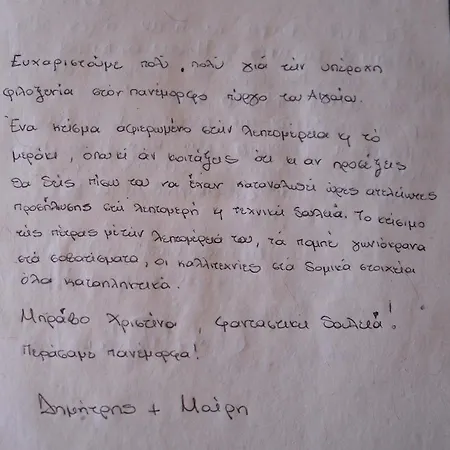 Ευχαριστούμε πολύ, πολύ γιά τήν υπέροχη
φιλοξενία στόν πανέμορφο πύργο του Αιγαίου.
Ένα κτίσμα αφιερωμένο στήν λεπτομέρεια κ τό
μεράκι, όπου κι άν κοιτάξεις ότι κι αν προσέξεις
θα δείς πίσω του να έχουν καταναλωθεί ώρες ατελείωτες
προσήλωσης στή λεπτομερή κ τεχνική δουλειά. Το χτίσιμο
τής πέτρας μέ τήν λεπτομέρειά του, τά γωνιόκρανα
στά σοβατίσματα, οι καλλιτεχνίες στά δομικά στοιχεία
όλα καταπληκτικά.
Μπράβο Χριστίνα, φανταστική δουλειά!
Περάσαμε πανέμορφα!
Δημήτρης + Μαίρη